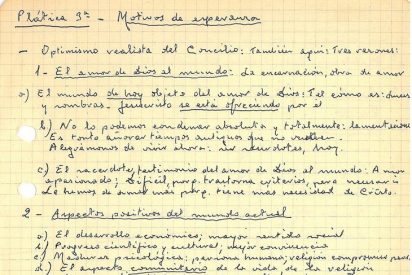 Plática 3ª - Motivos de esperanza
- Optimismo realista del Concilio: También aquí: Tres razones:
1 - El amor de Dios al mundo: La encarnación, obra de amor
a) El mundo de hoy objeto del amor de Dios: Tal como es: luces
y sombras. Jesucristo se está ofreciendo por él
b) No lo podemos condenar absoluta y totalmente: lamentaciones
Es tonto añorar tiempos antiguos que no vuelven.
Alegrémonos de vivir ahora: Ser sacerdotes, hoy.
c) El sacerdote, testimonio del amor de Dios al mundo: Amor
apasionado; Difícil, porq. trastorna criterios, pero necesario
Le hemos de amar más porq. tiene más necesidad de Cristo.
2 - Aspectos positivos del mundo actual
a) El desarrollo económico; mayor sentido social
b) Progreso científico y cultural; mejor convivencia
c) Madurez psicológica; persona humana; religión
d) El aspecto comunitario de la vida, de la religión